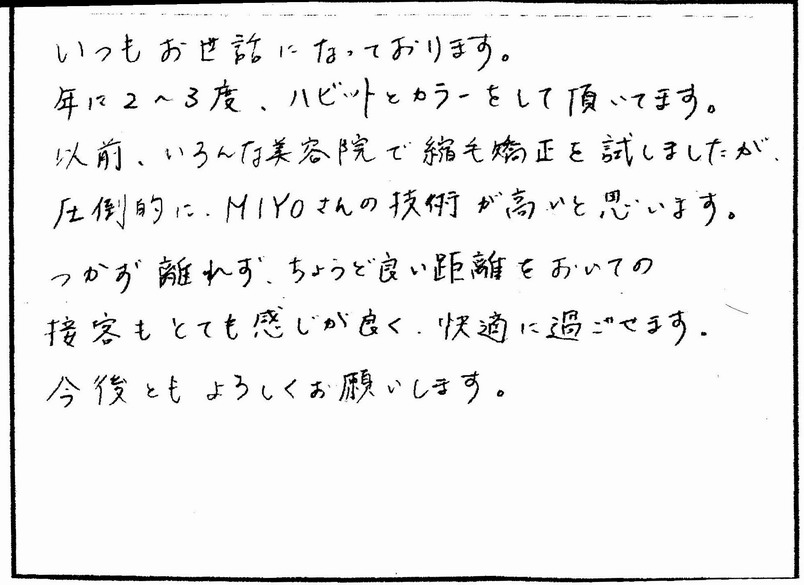 いつもお世話になっております。
年に2～3度、ハビットとカラーをして頂いてます。
以前、いろんな美容院で縮毛矯正を試しましたが、
圧倒的に、MIYOさんの技術が高いと思います。
つかず離れず、ちょうど良い距離をおいての
接客もとても感じが良く、快適に過ごせます。
今後ともよろしくお願いします。